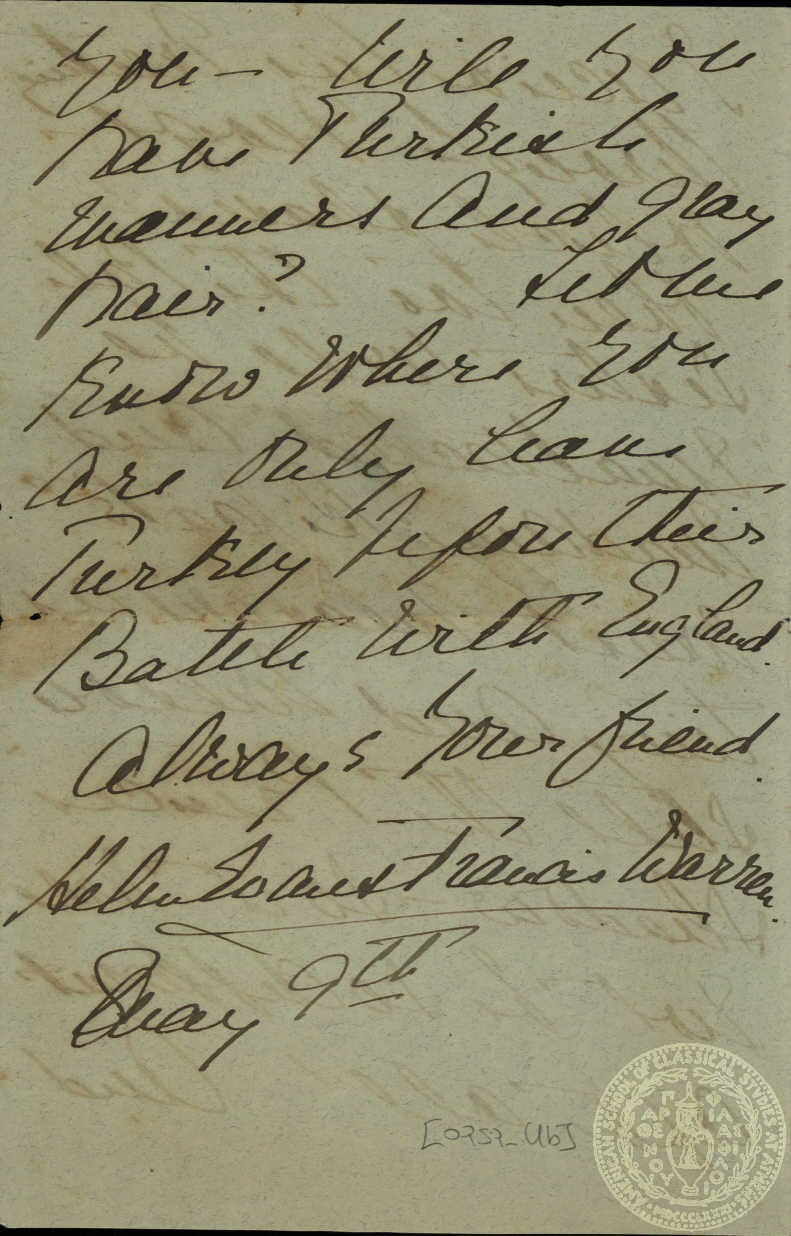 You — Will You
have Turkish
manners and gray
hair? Let me
know where you
are only leave
Turkey before this
Battle with England.
Always Your friend.
Helen Evans Francis Warren.
May 9th
[0252_Ub]
AMERICAN SCHOOL OF CLASSICAL STUDIES AT ATHENS
ΠΑΡΘΕΝΟΥ ΦΙΛΑΣ ΦΙΛΟΥ
MDCCCLXXXI